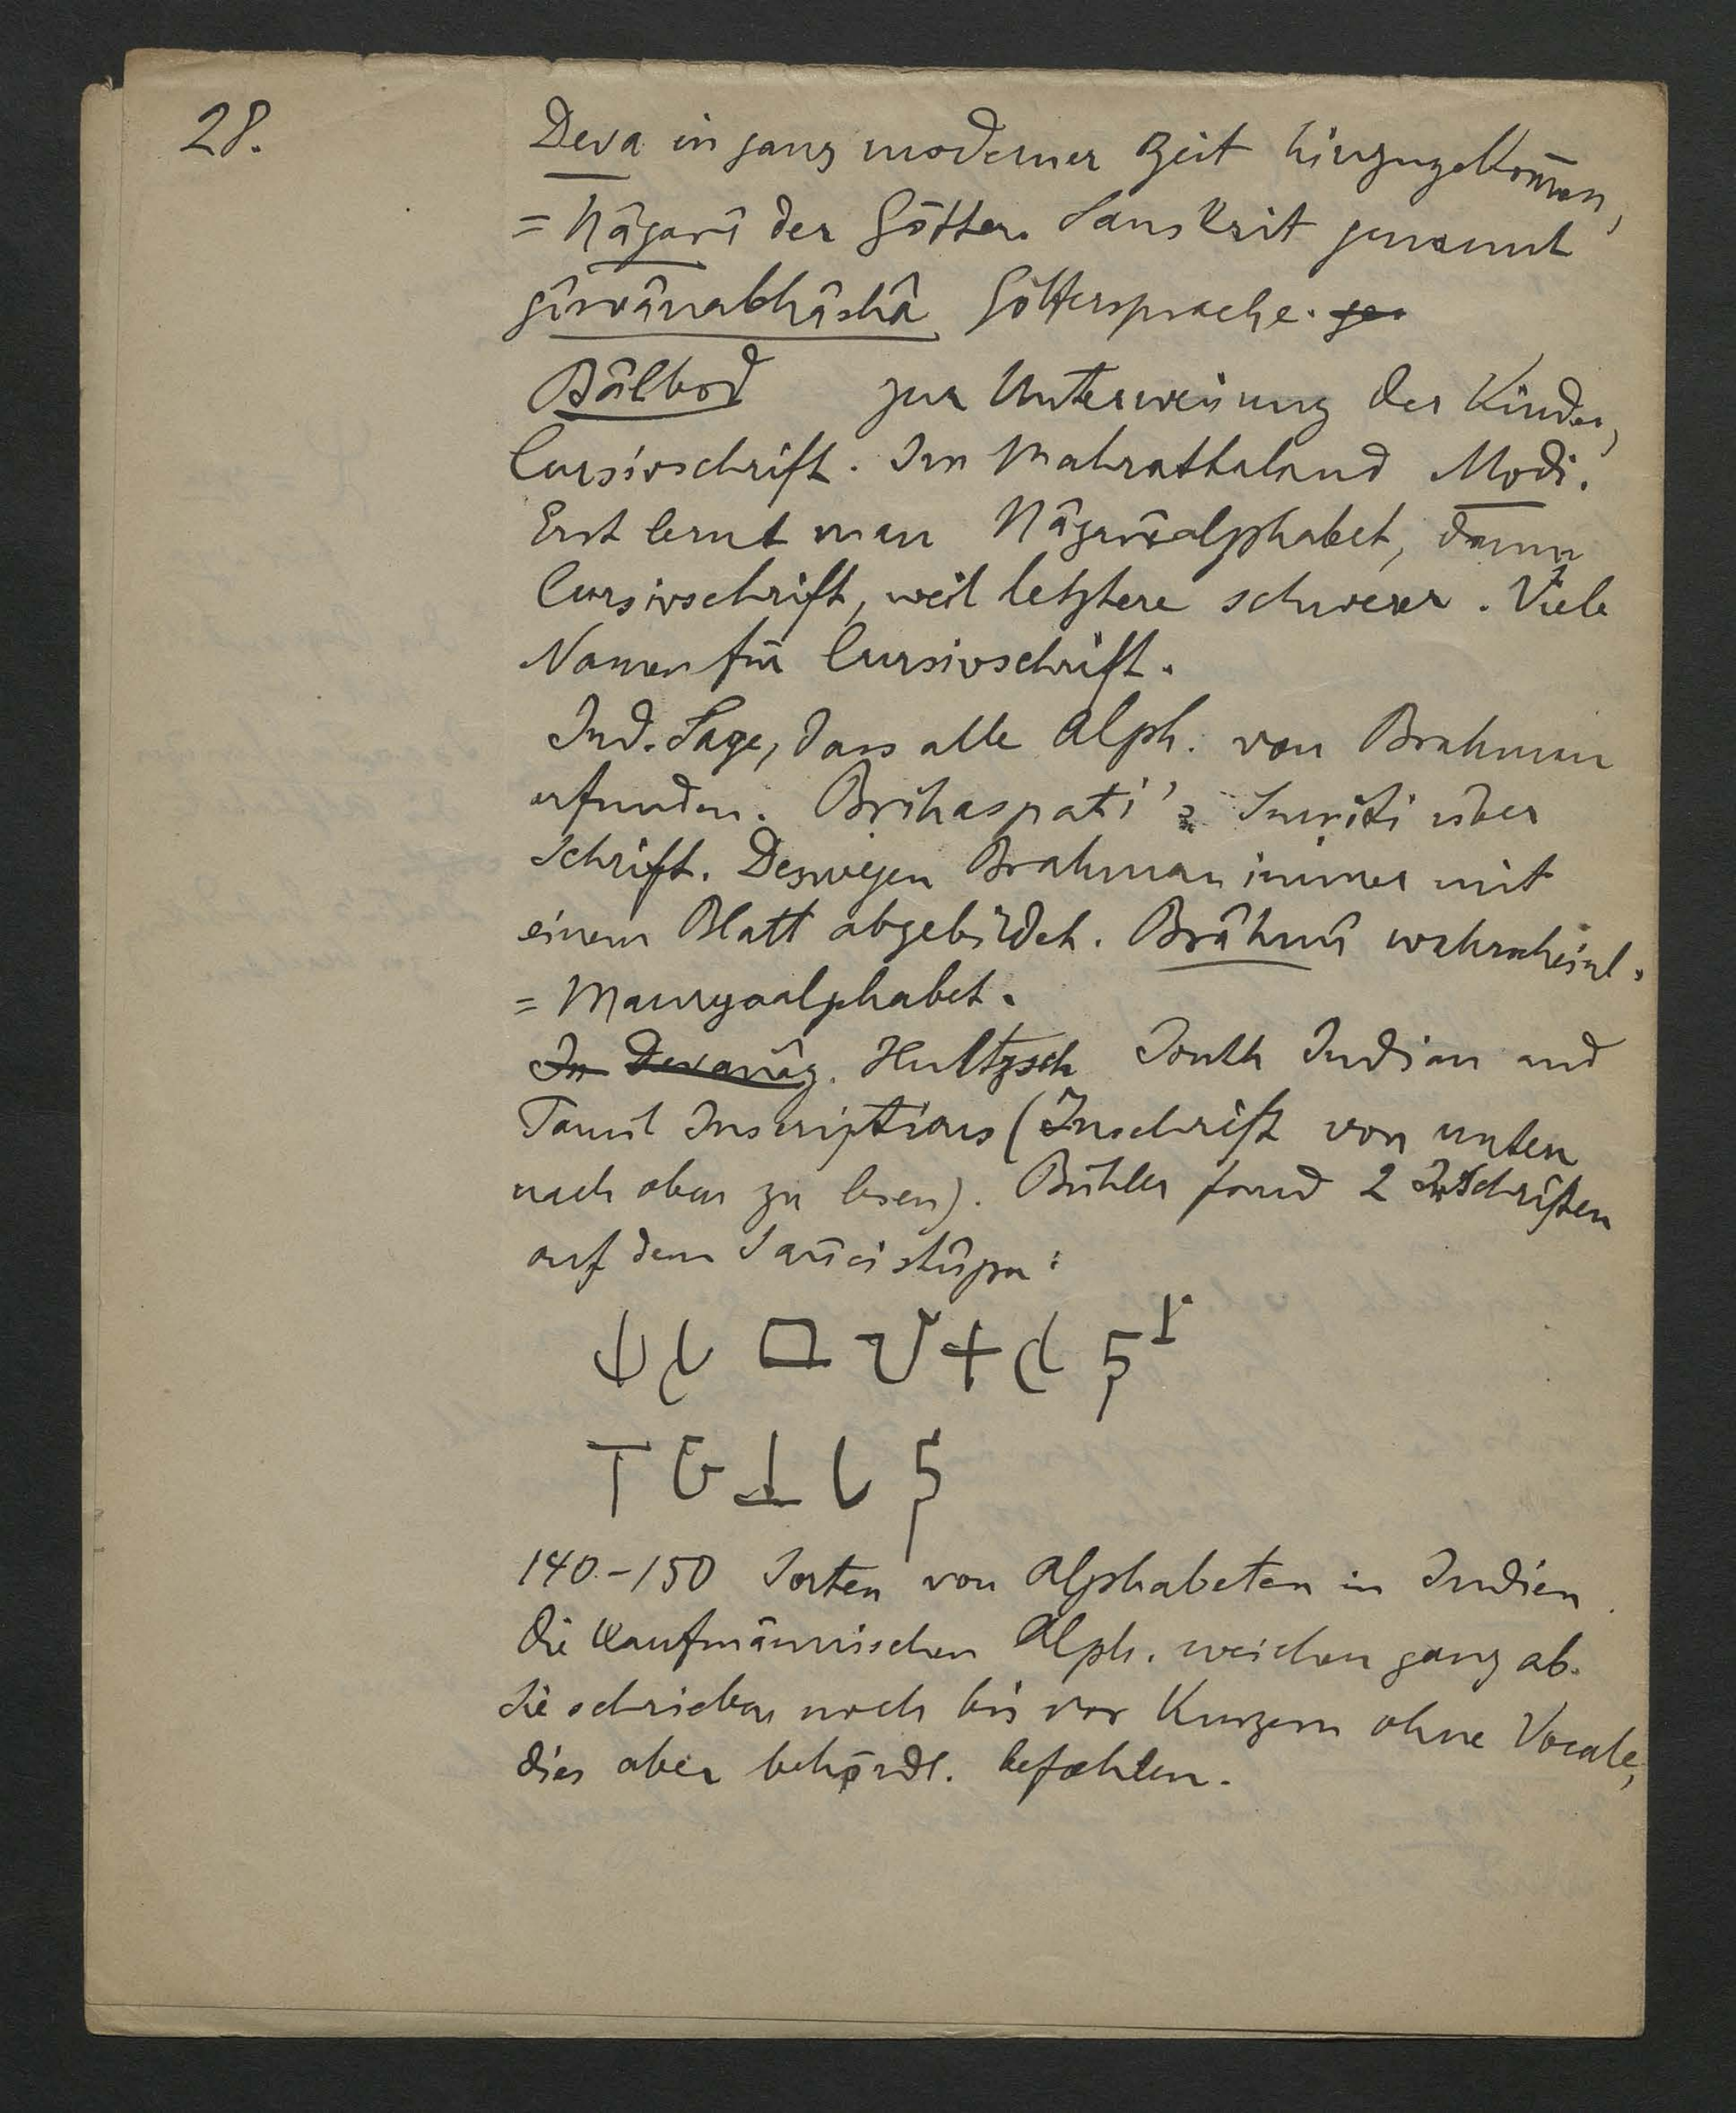 28.
Deva in ganz moderner Zeit hinzugekom̄en,
= Nâgarî der Götter. Sanskrit genannt
gîrvânabhâshâ Göttersprache.
Bâlbod zur Unterweisung der Kinder,
Cursivschrift. Im Mahrathaland Modi.
Erst lernt man Nâgarîalphabet, dann
Cursivschrift, weil letztere schwerer. Viele
Namen für Cursivschrift.
Ind. Sage, dass alle Alph. von Brahman
erfunden. Bṛihaspati's Smṛiti über
Schrift. Deswegen Brahman immer mit
einem Blatt abgebildet. Brâhmî wahrscheinl.
= Mauryaalphabet.
In Devanâg. Hultzsch South Indian and
Tamil Inscriptions (Inschrift von unten
nach oben zu lesen). Bühler fand 2 Inschriften
auf dem Sañcistûpa:
140-150 Sorten von Alphabeten in Indien.
Die Kaufmännischen Alph. weichen ganz ab.
Sie schrieben noch bis vor Kurzem ohne Vocale,
dies aber behördl. befohlen.